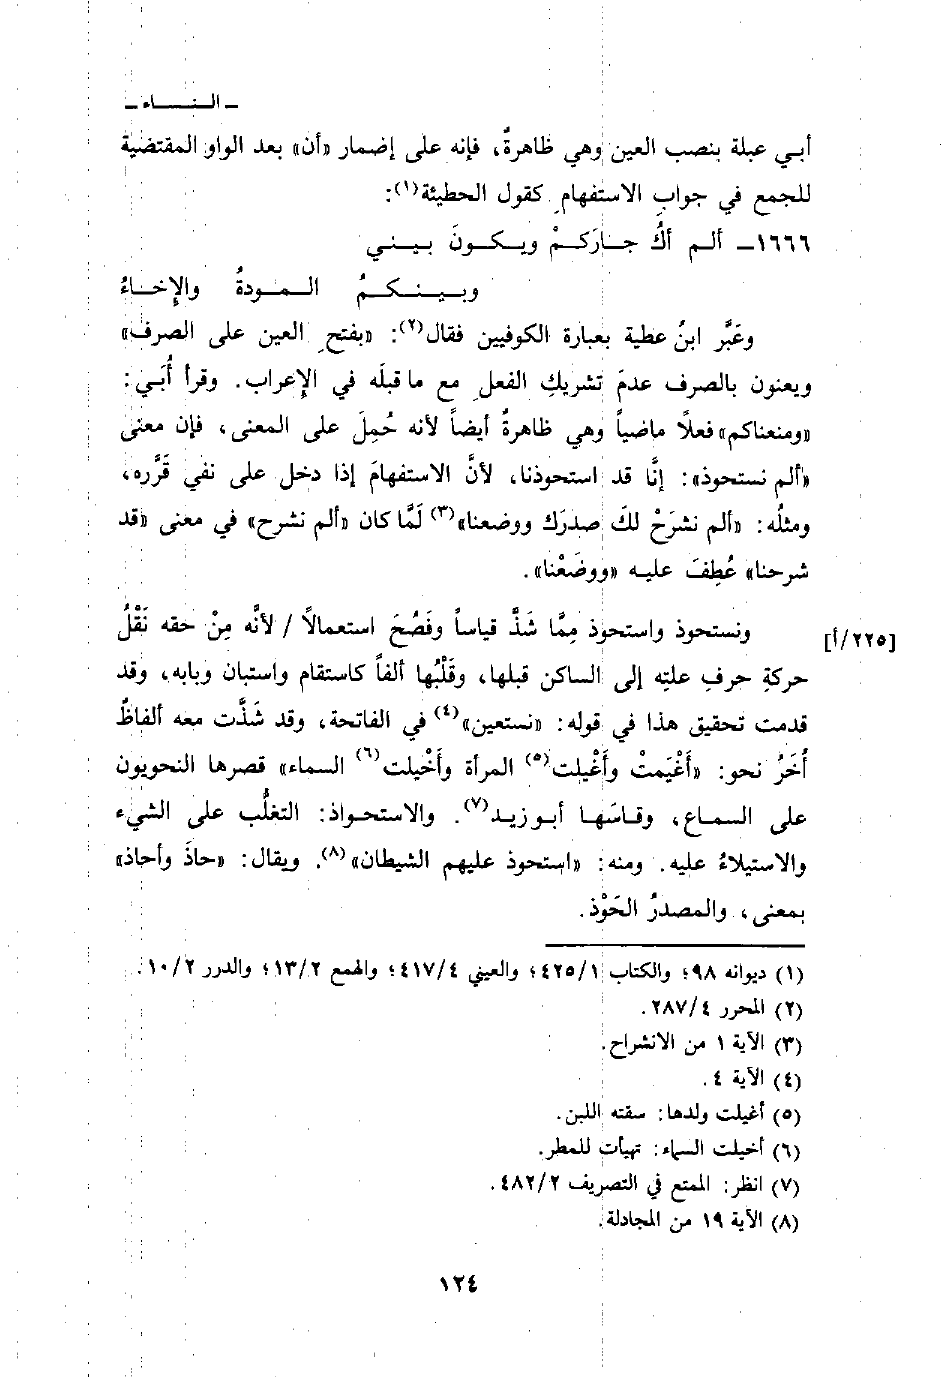 ـ النساء ـ
أبي عبلة بنصب العين وهي ظاهرةٌ، فإنه على إضمار «أن» بعد الواو المقتضية
للجمع في جوابِ الاستفهامِ كقول الحطيئة(١):
١٦٦٦ـ ألم أكُ جارَكمْ ويكونَ بيني
وبينكمُ المودةُ والإِخاءُ
وعَبَّر ابنُ عطية بعبارة الكوفيين فقال(٢): «بفتحِ العين على الصرف»
ويعنون بالصرف عدمَ تشريكِ الفعلِ مع ما قبلَه في الإِعراب. وقرأ أُبَي:
«ومنعناكم» فعلًا ماضياً وهي ظاهرةٌ أيضاً لأنه حُمِلَ على المعنى، فإن معنى
«ألم نستحوذ»: إنَّا قد استحوذنا، لأنَّ الاستفهامَ إذا دخل على نفي قَرَّره،
ومثلُه: «ألم نشرَحْ لكَ صدرَك ووضعنا»(٣) لَمَّا كان «ألم نشرح» في معنى «قد
شرحنا» عُطِفَ عليه «ووضَعْنا».
ونستحوذ واستحوذ مِمَّا شَذَّ قياساً وفَصُحَ استعمالًا / لأنَّه مِنْ حقه نَقْلُ
[٢٢٥/أ]
حركةِ حرفِ علتِه إلى الساكن قبلها، وقَلْبُها ألفاً كاستقام واستبان وبابه، وقد
قدمت تحقيق هذا في قوله: «نستعين»(٤) في الفاتحة، وقد شَذَّت معه ألفاظٌ
أُخَرُ نحو: «أَغْيَمتْ وأَغْيلت(٥) المرأة وأَخْيلت(٦) السماء» قصرها النحويون
على السماع، وقاسَها أبو زيد(٧). والاستحواذ: التغلُّب على الشيء
والاستيلاءُ عليه. ومنه: «استحوذ عليهم الشيطان»(٨). ويقال: «حاذَ وأحاذ»
بمعنى، والمصدرُ الحَوْذ.
(١) ديوانه ٩٨؛ والكتاب ٤٢٥/١؛ والعيني ٤١٧/٤؛ والهمع ١٣/٢؛ والدرر ١٠/٢.
(٢) المحرر ٢٨٧/٤.
(٣) الآية ١ من الانشراح.
(٤) الآية ٤.
(٥) أغيلت ولدها: سقته اللبن.
(٦) أخيلت السماء: تهيأت للمطر.
(٧) انظر: الممتع في التصريف ٤٨٢/٢.
(٨) الآية ١٩ من المجادلة.
١٢٤